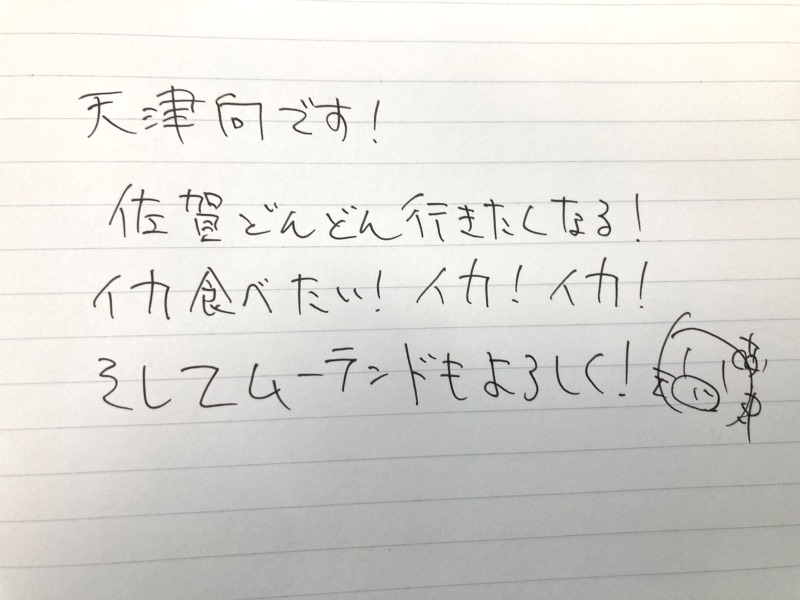 天津向です！
佐賀どんどん行きたくなる！
イカ食べたい！イカ！イカ！
そしてムーランドもよろしく！